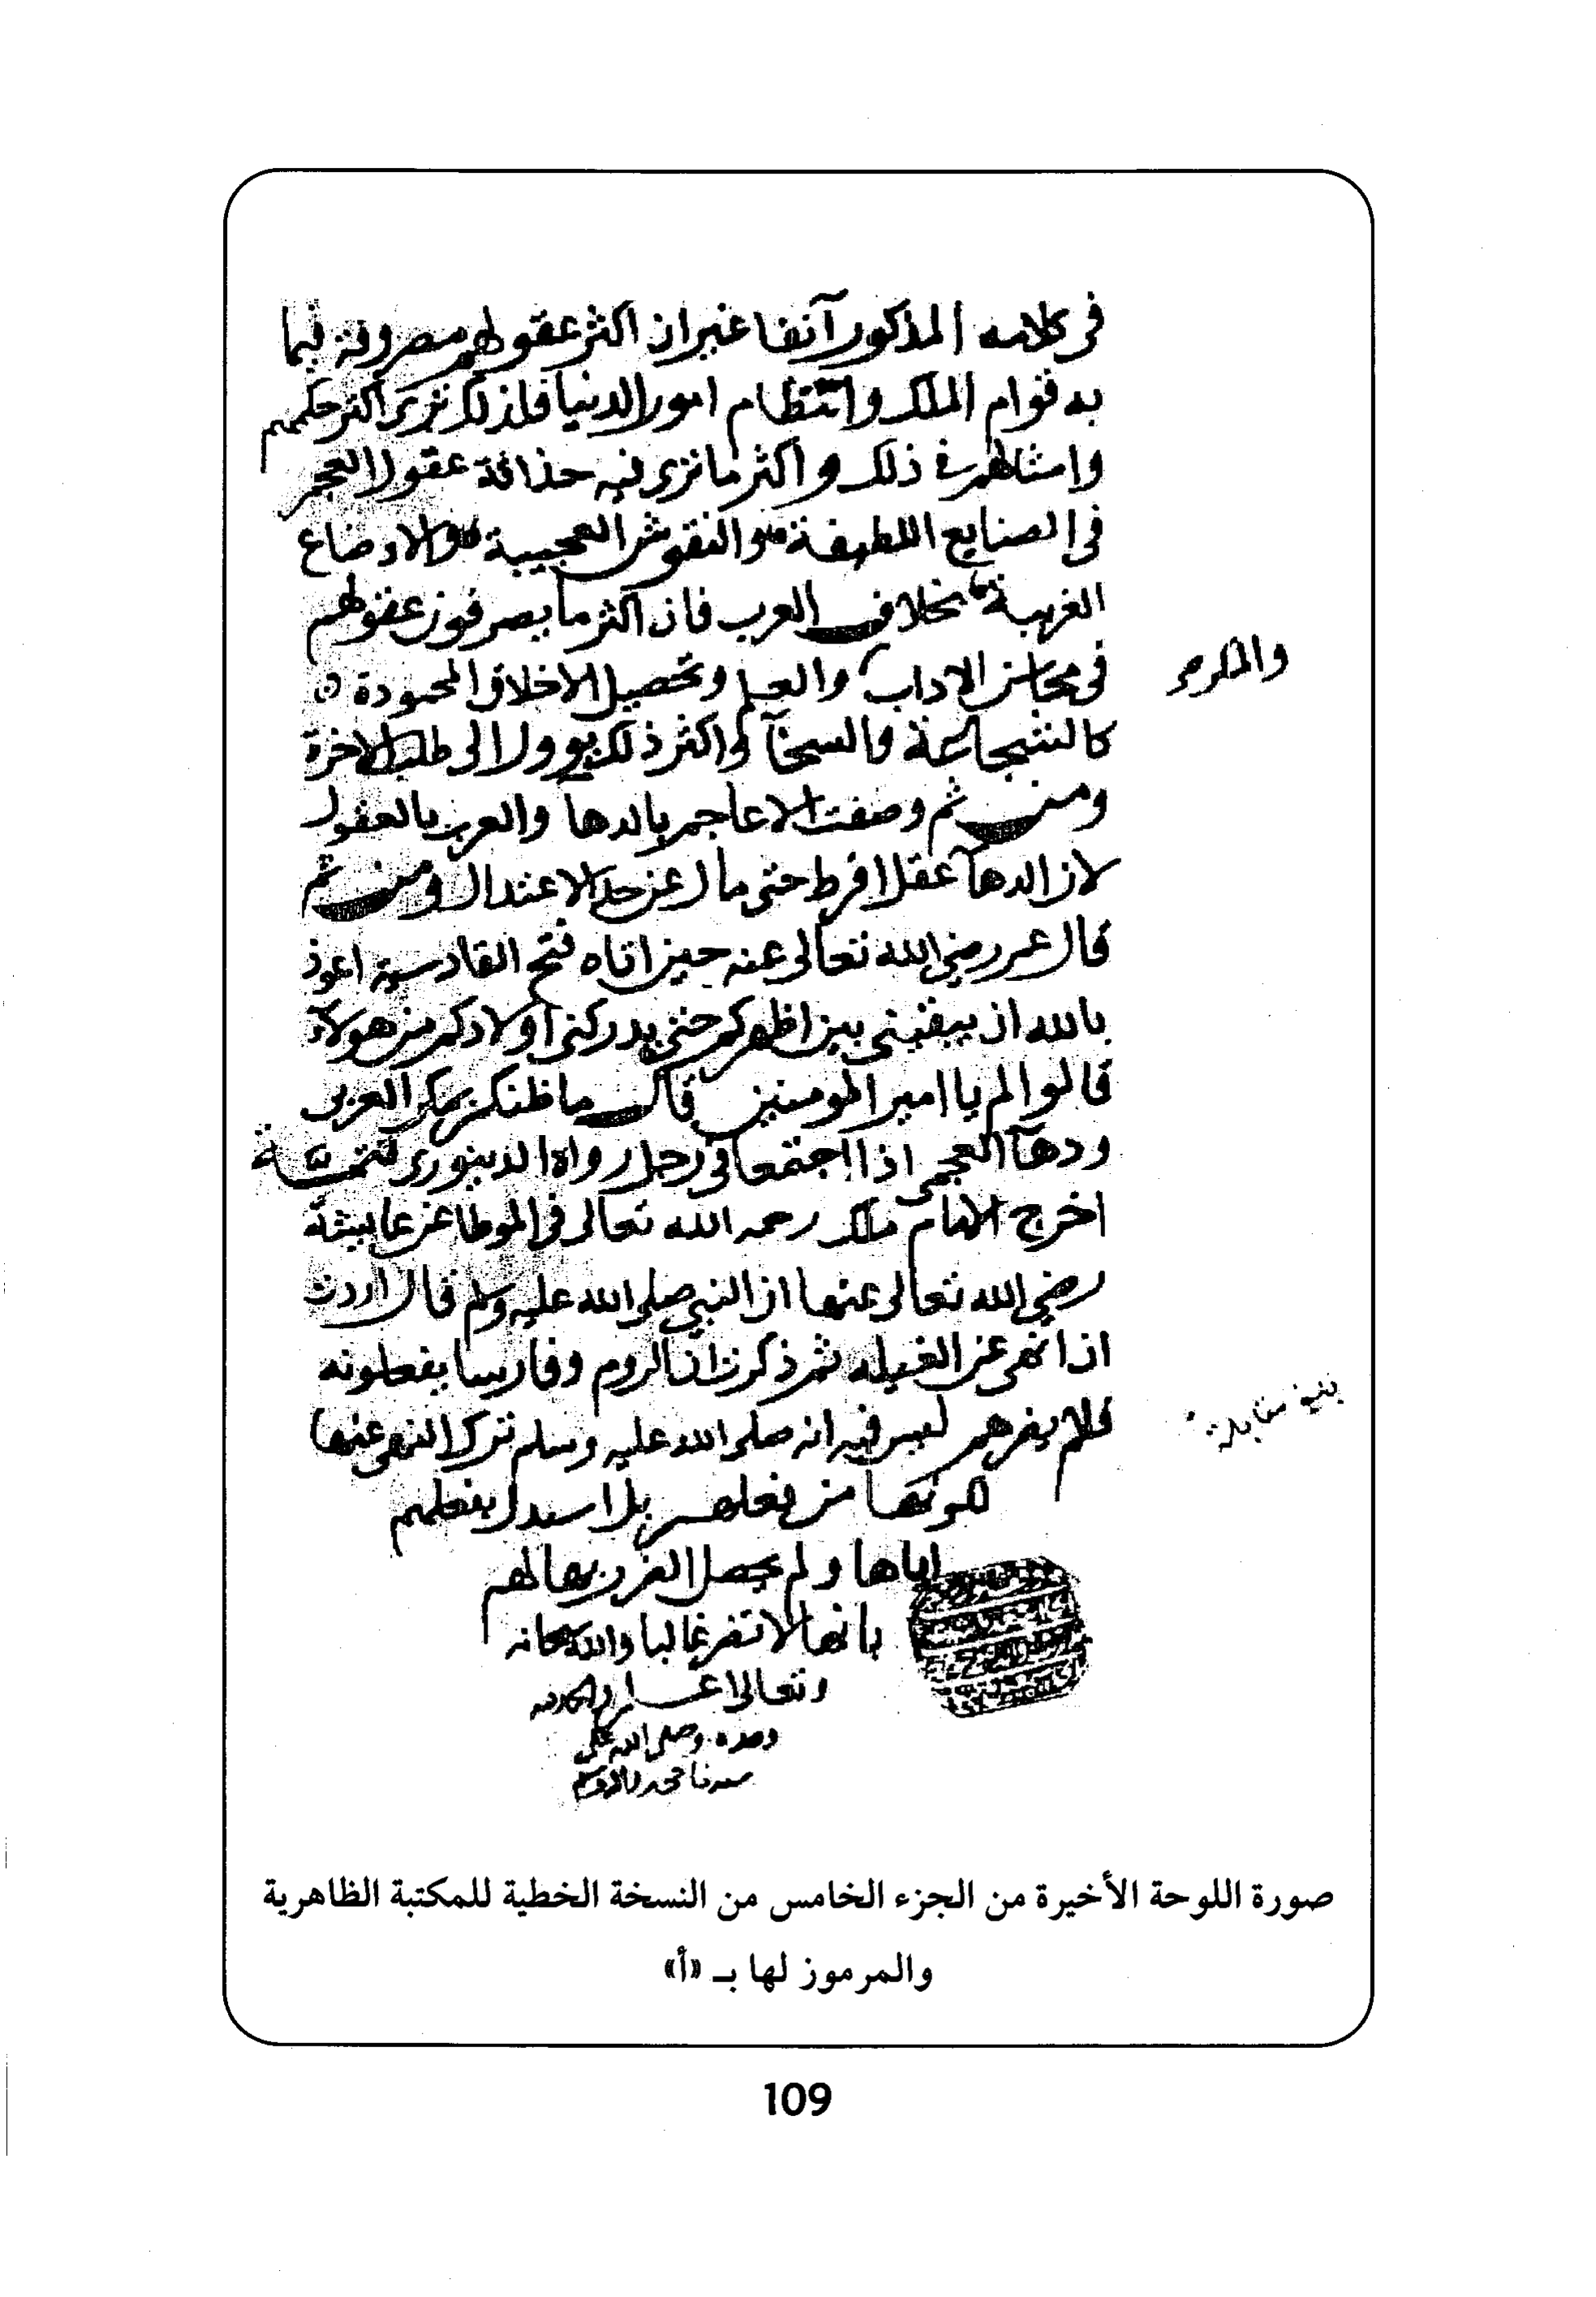 في كلامه المذكور آنفا غير ان اكثر عقولهم مصروفة فيما
به قوام الملك وانتظام امور الدنيا فلذلك ترى اكثر حكمهم
وامثالهم في ذلك واكثر ما نرى فيه حذاقة عقول العجم
في الصنايع اللطيفة والنقوش العجيبة والاوضاع
الغريبة بخلاف العرب فان اكثر ما يصرفون عقولهم
في محاسن الاداب والعلم وتحصيل الاخلاق المحمودة
والمكرم
كالشجاعة والسخآ واكثر ذلك يوول الى طلب الاخرة
ومن ثم وصفت الاعاجم بالدها والعرب بالعقول
لان الدهآ عقل افرط حتى مال عن حد الاعتدال ومن ثم
قال عمر رضي الله تعالى عنه حين اتاه فتح القادسية اعوذ
بالله ان يبقيني بين اظهركم حتى يدركني اولادكم من هولآء
قالوا لم يا امير المومنين قال ما ظنكم بمكر العربي
ودهآ العجمي اذا اجتمعا في رجل رواه الدينوري تتمة
اخرج الامام ملك رحمه الله تعالى في الموطا عن عايشة
رضي الله تعالى عنها ان النبي صلى الله عليه وسلم قال اردت
ان انهى عن الغيله ثم ذكرت ان الروم وفارسا يفعلونه
فلا يضرهم ليس فيه انه صلى الله عليه وسلم ترك النهي عنها
لكونها من فعلهم بل استدل بفعلهم
اياها ولم يحصل الضرر بها لهم
بانها لا تضر غالبا والله سبحانه
وتعالى اعلم
وحده وصلى الله على
سيدنا محمد واله وسلم
صورة اللوحة الأخيرة من الجزء الخامس من النسخة الخطية للمكتبة الظاهرية
والمرموز لها بـ «أ»
109